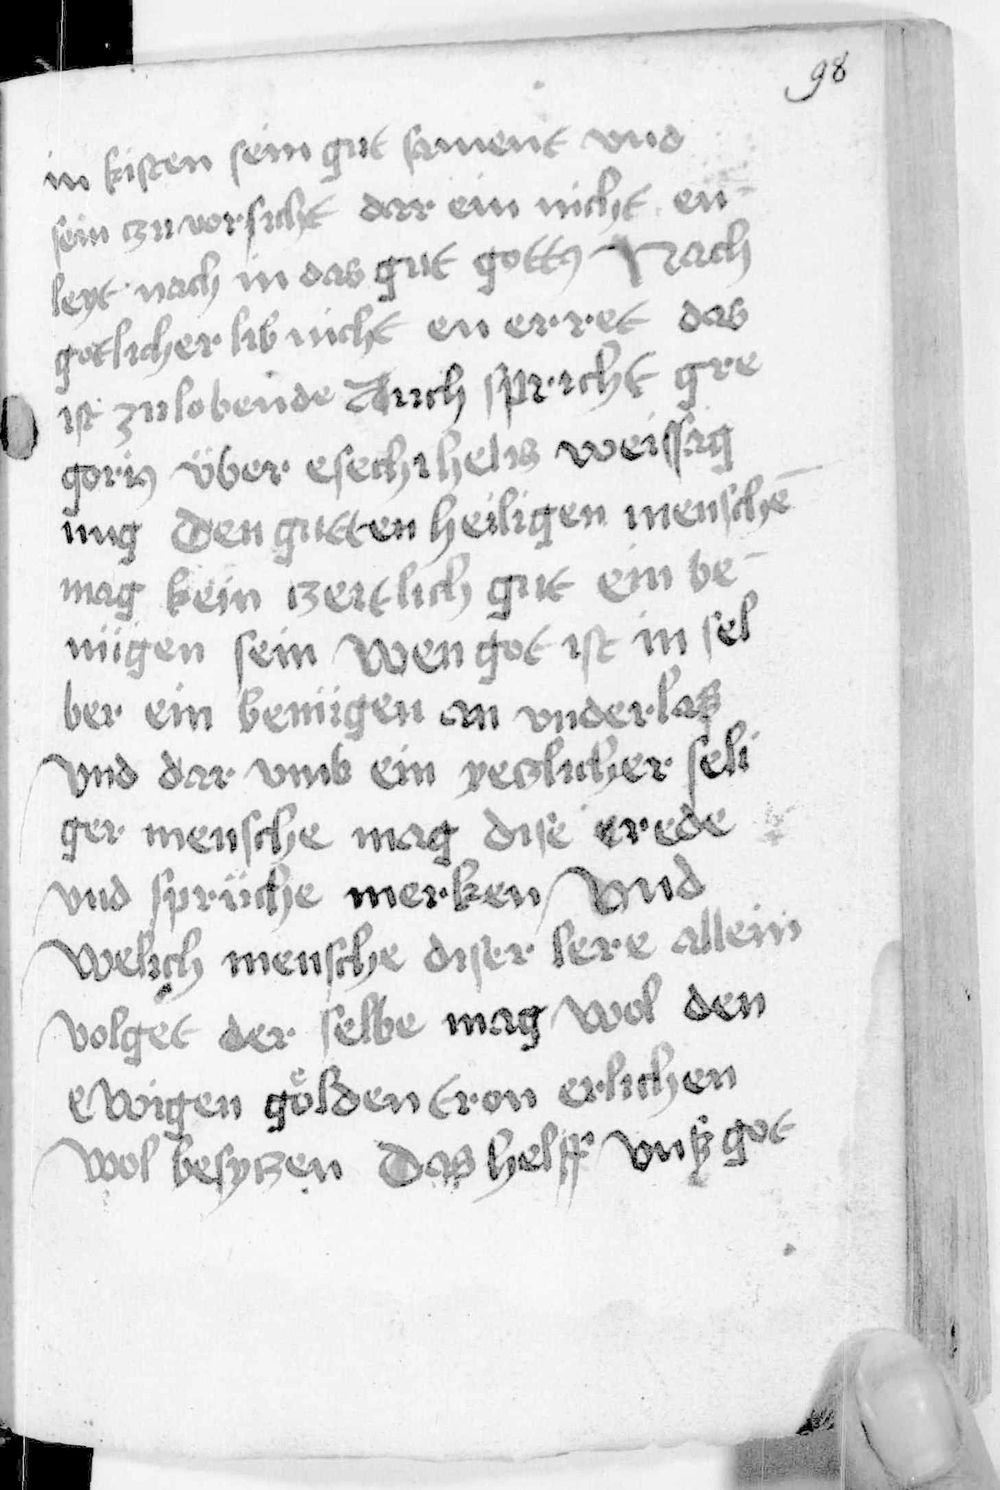 98
in kisten sein gut sament vnd
sein zuvorsicht dar ein nicht en
leyt nach in das gut gottꝰ Nach
gotlicher lib nicht en erret das
ist zulobende Auch spricht gre
goriꝰ über esechihelis weissag
ung Den gutten heiligen menschē
mag kein zeitlich gut ein be
nügen sein Wen got ist in sel
ber ein benügen an vnderlas
Vnd dar vmb ein yeczlicher seli
ger mensche mag dise erede
vnd sprüche merken Vnd
Welich mensche diser lere allein
volget der selbe mag wol den
ewigen gölden tron erlichen
wol besyczen Das helff vnß got